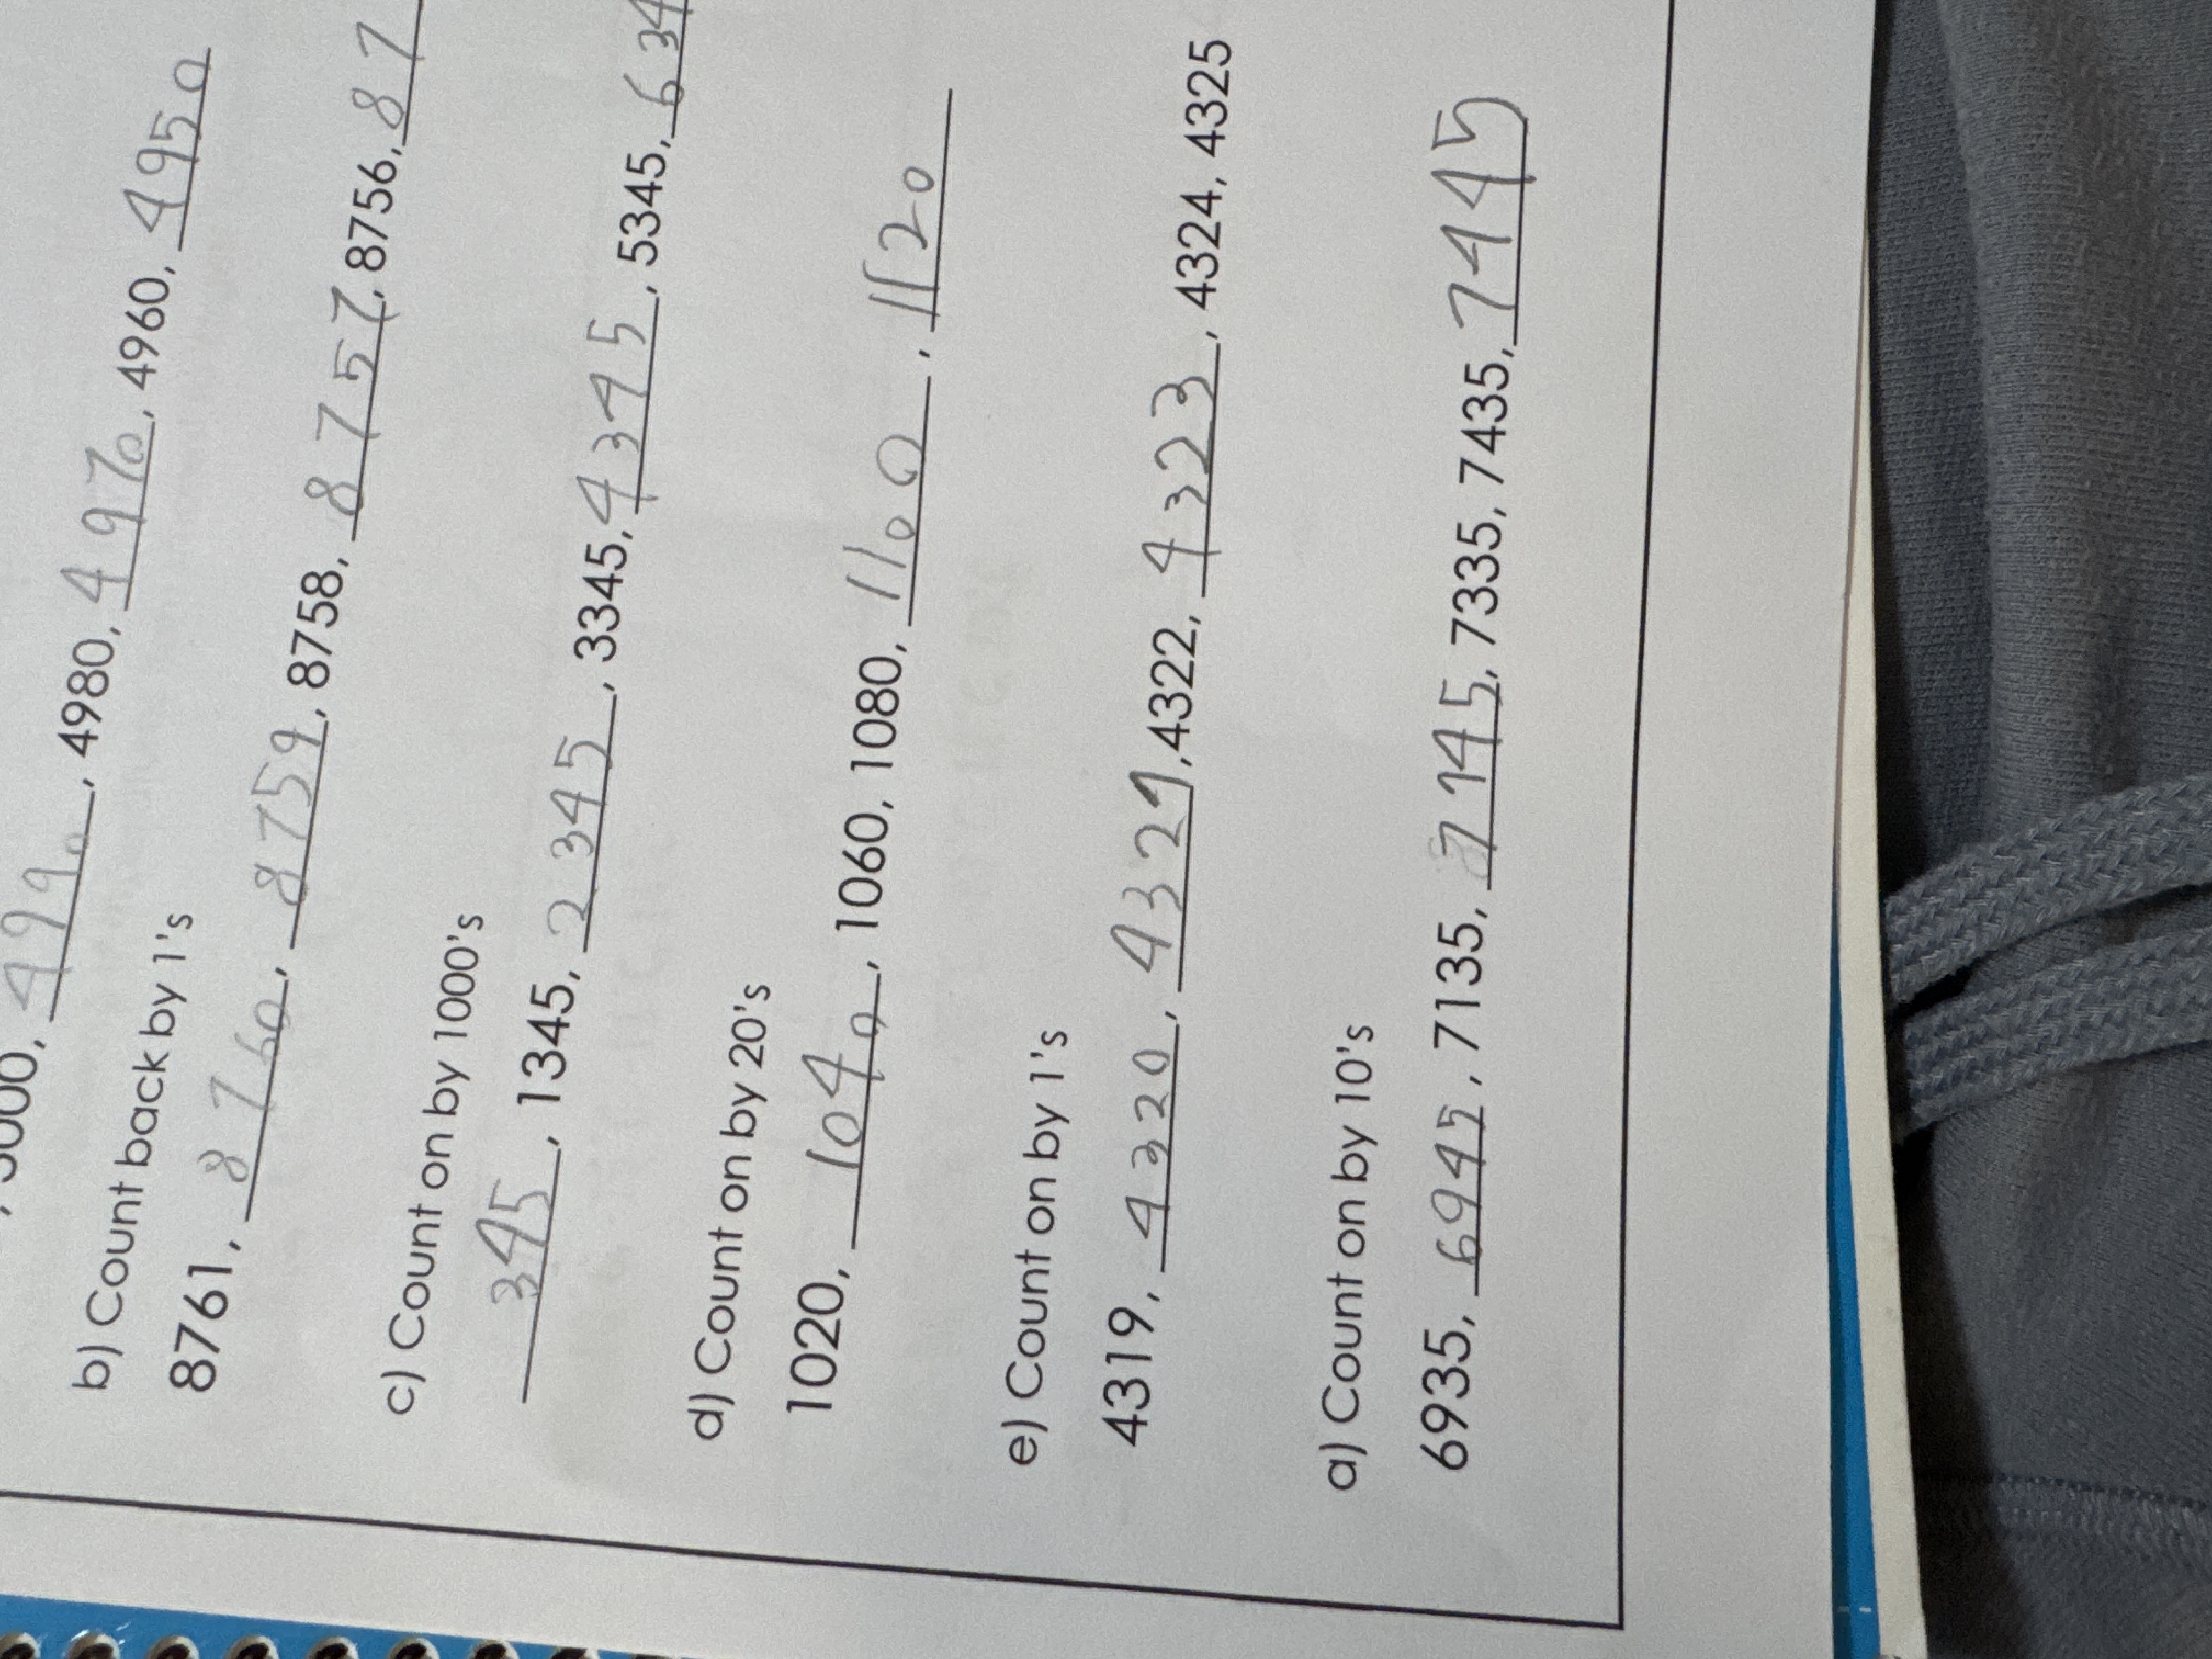 5000, 4990, 4980, 4970, 4960, 4950
b) Count back by 1's
8761, 8760, 8759, 8758, 8757, 8756, 87
c) Count on by 1000's
345, 1345, 2345, 3345, 4345, 5345, 634
d) Count on by 20's
1020, 1040, 1060, 1080, 1100, 1120
e) Count on by 1's
4319, 4320, 4321, 4322, 4323, 4324, 4325
a) Count on by 10's
6935, 6945, 7135, 7145, 7335, 7435, 7445